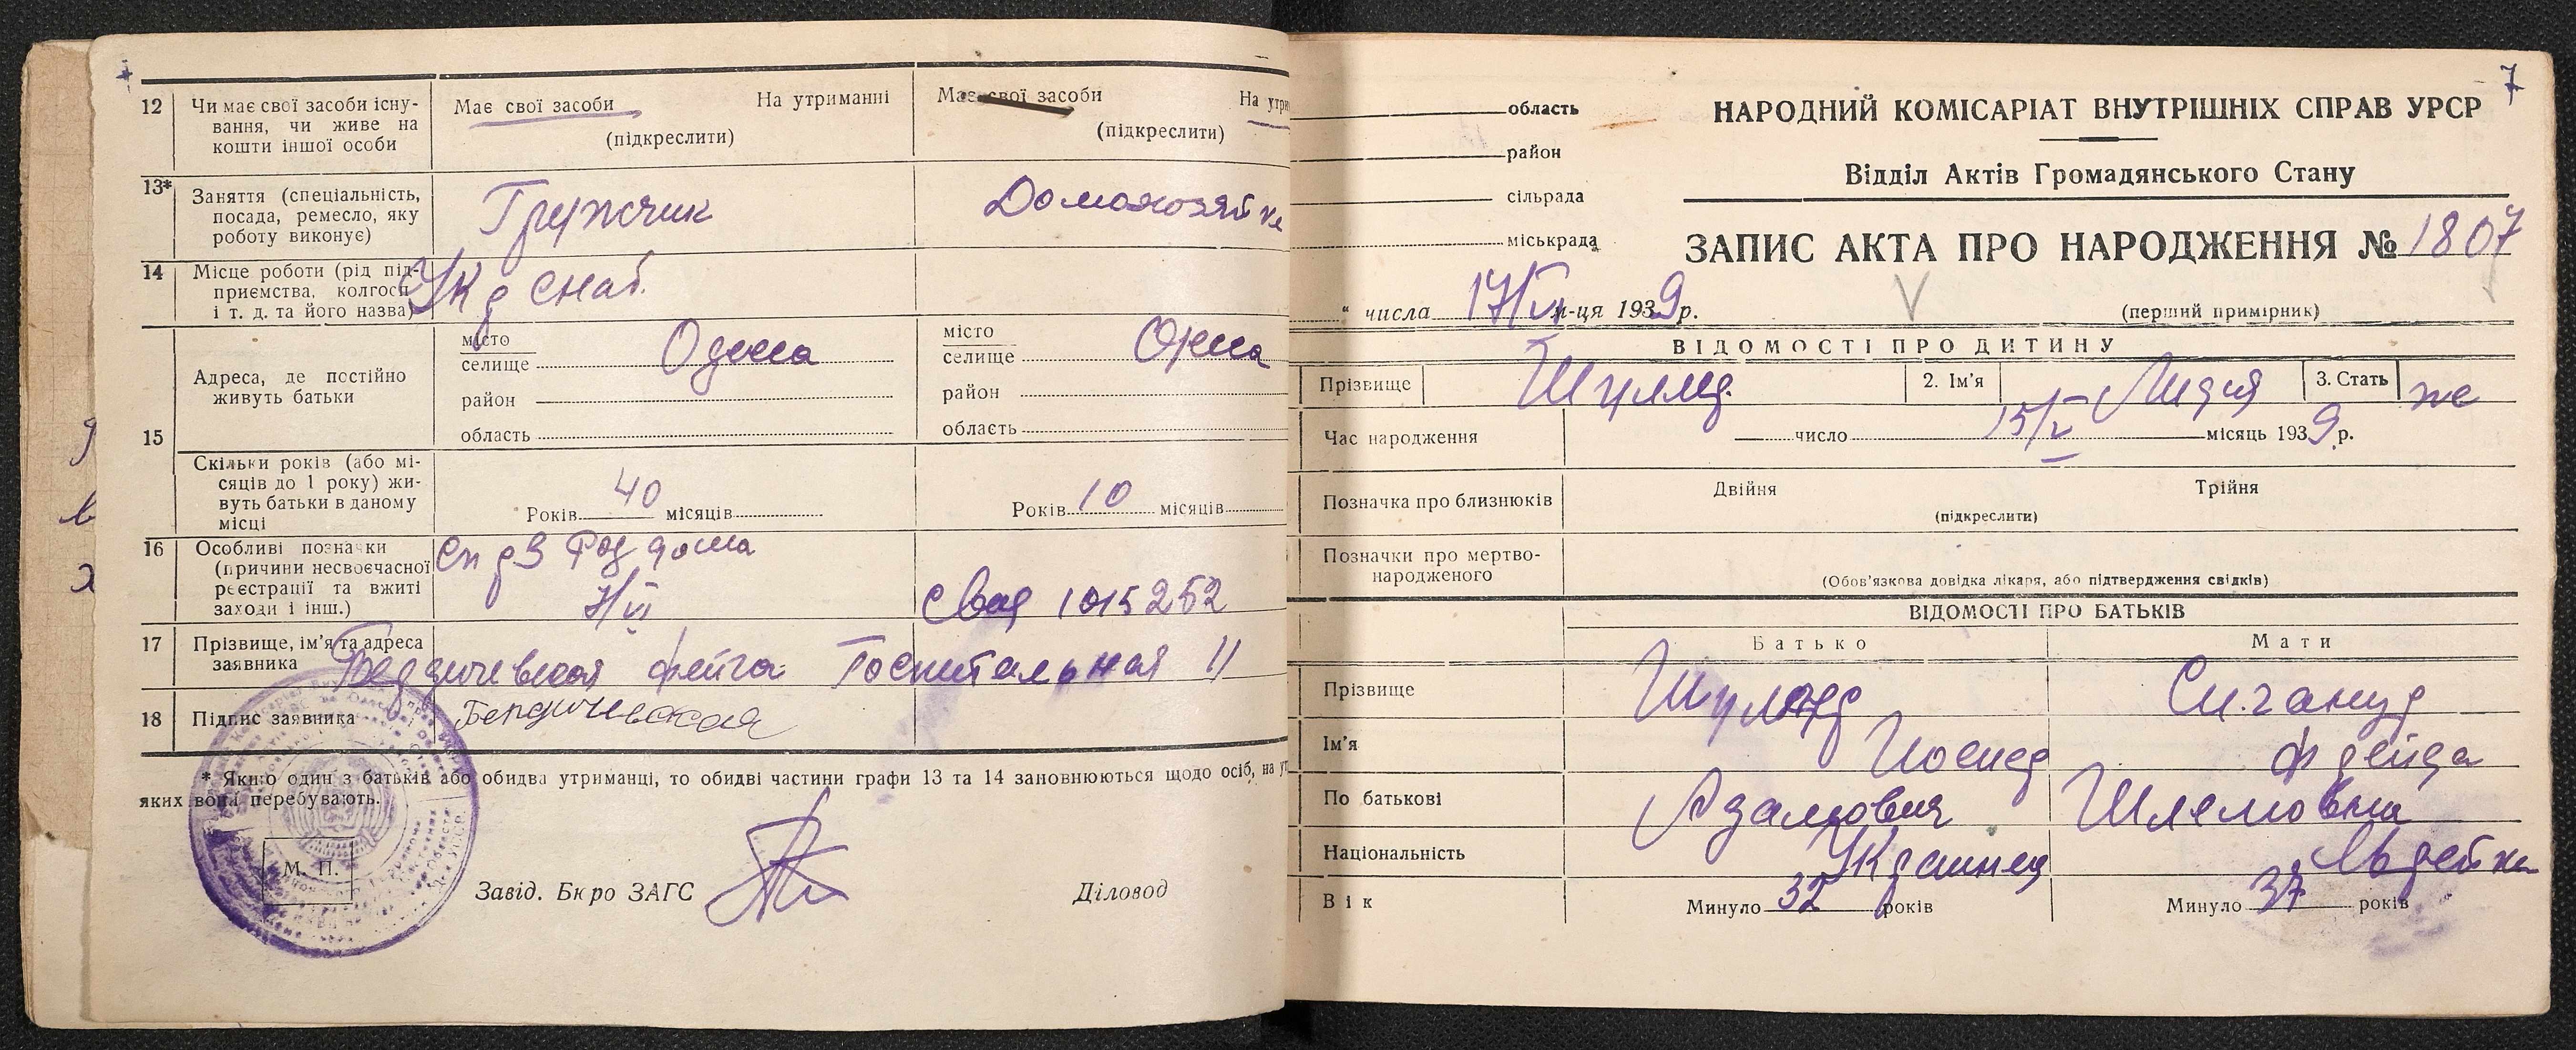 12 Чи має свої засоби існу-
вання, чи живе на
кошти іншої особи
Має свої засоби На утриманні
(підкреслити)
Має свої засоби На утри
(підкреслити)
13* Заняття (спеціальність,
посада, ремесло, яку
роботу виконує)
Грузчик
Домохозяйка
14 Місце роботи (рід під-
приємства, колгосп
і т. д. та його назва)
снаб.
15 Адреса, де постійно
живуть батьки
місто
селище Одесса
район
область
місто
селище Одесса
район
область
Скільки років (або мі-
сяців до 1 року) жи-
вуть батьки в даному
місці
Років 40 місяців
Років 10 місяців
16 Особливі позначки
(причини несвоєчасної
реєстрації та вжиті
заходи і інш.)
Роддома
7/VI
1015252
17 Прізвище, ім'я та адреса
заявника
Бердичевская Фейга Госпитальная 11
18 Підпис заявника
Бердичевская
* Якщо один з батьків або обидва утриманці, то обидві частини графи 13 та 14 заповнюються щодо осіб, на ут
яких вони перебувають.
М. П.
Завід. Бюро ЗАГС
Діловод
7
область
район
сільрада
міськрада
НАРОДНИЙ КОМІСАРІАТ ВНУТРІШНІХ СПРАВ УРСР
Відділ Актів Громадянського Стану
ЗАПИС АКТА ПРО НАРОДЖЕННЯ № 1807
" числа 17/VI м-ця 1939 р.
(перший примірник)
ВІДОМОСТІ ПРО ДИТИНУ
Прізвище 2. Ім'я Лидия 3. Стать же
Час народження число 15/V місяць 1939 р.
Позначка про близнюків Двійня Трійня
(підкреслити)
Позначки про мертво-
народженого
(Обов'язкова довідка лікаря, або підтвердження свідків)
ВІДОМОСТІ ПРО БАТЬКІВ
Батько Мати
Прізвище
Ім'я Иосиф
По батькові Адамович Шлемовна
Національність Украинец Еврейка
Вік Минуло 32 років Минуло 37 років